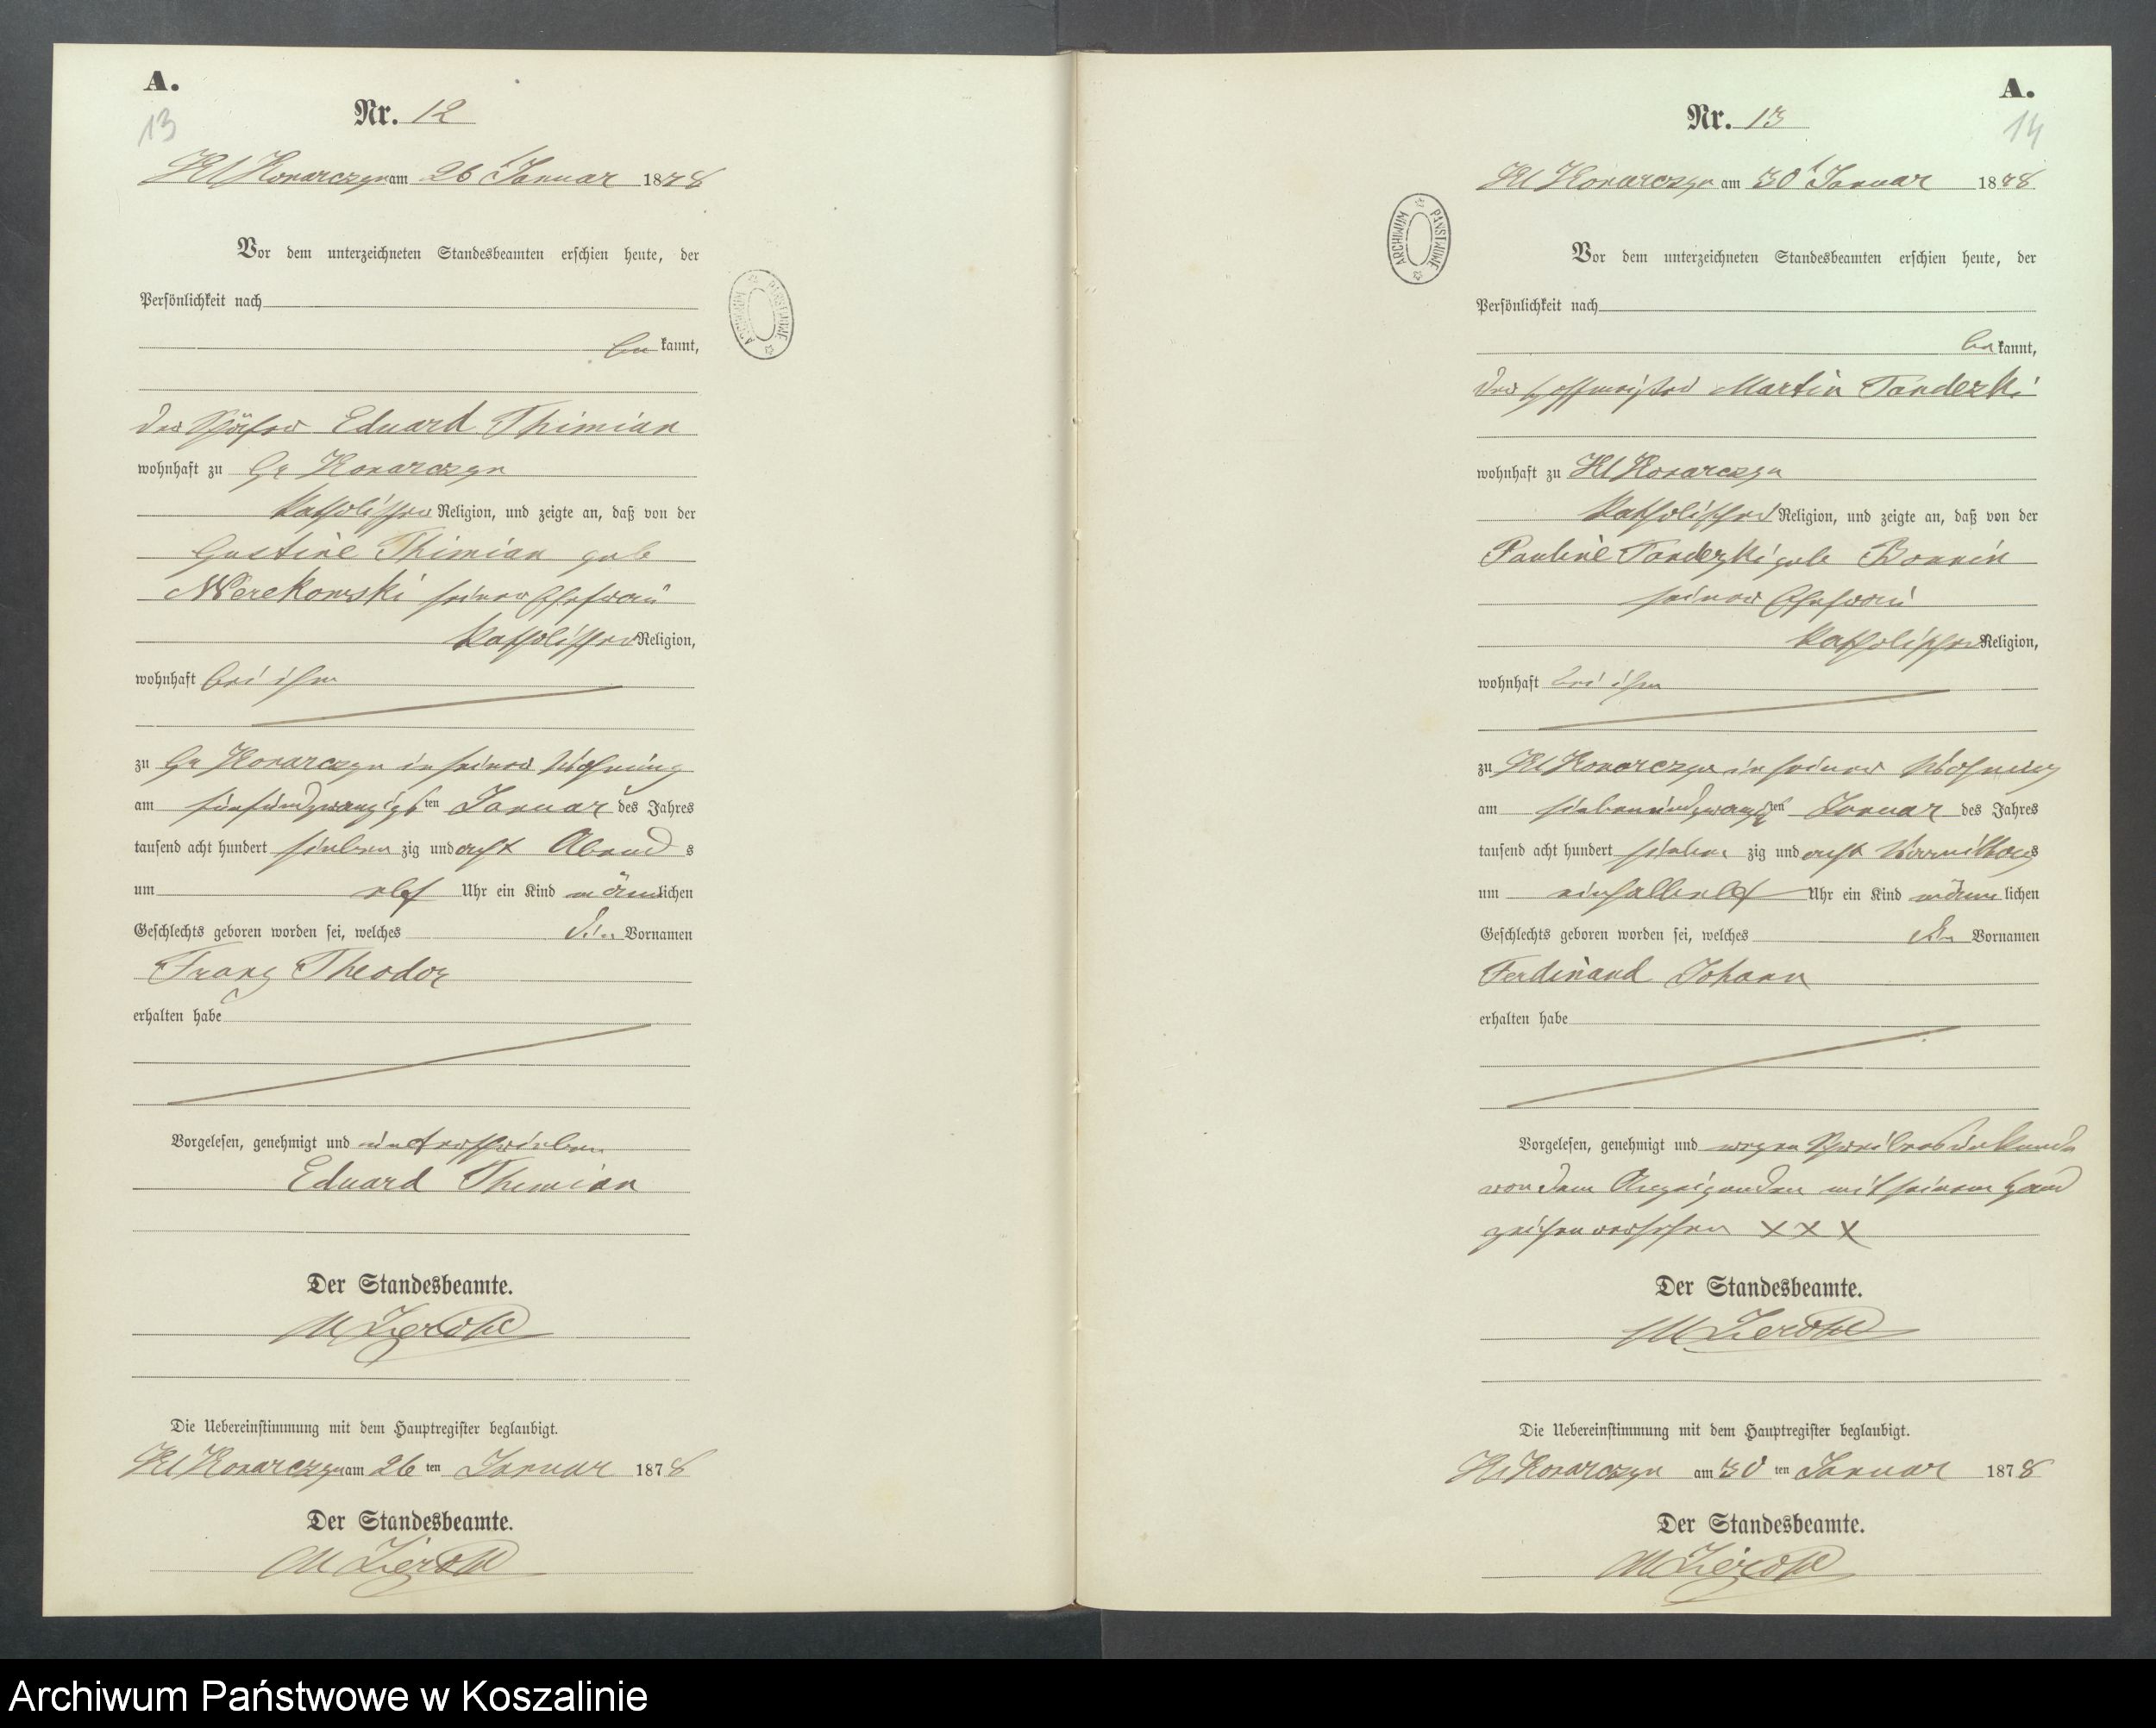 A.
13
Nr. 12
Kl Konarczyn am 26 Januar 1878
Vor dem unterzeichneten Standesbeamten erschien heute, der
Persönlichkeit nach
be kannt,
der Schäfer Eduard Thimian
wohnhaft zu Gr Konarczyn
katholischer Religion, und zeigte an, daß von der
Justine Thimian geb
seiner Ehefrau
katholischer Religion,
wohnhaft bei ihm
zu Gr Konarczyn in seiner Wohnung
am fünfundzwanzigsten Januar des Jahres
tausend acht hundert sieben zig und acht Abends
um elf Uhr ein Kind männlichen
Geschlechts geboren worden sei, welches die Vornamen
Franz Theodor
erhalten habe
Vorgelesen, genehmigt und unterschrieben
Eduard Thimian
Der Standesbeamte.
Die Uebereinstimmung mit dem Hauptregister beglaubigt.
Kl Konarczyn am 26 ten Januar 1878
Der Standesbeamte.
A.
14
Nr. 13
Kl Konarczyn am 30 Januar 1878
ARCHIWUM PAŃSTWOWE
Vor dem unterzeichneten Standesbeamten erschien heute, der
Persönlichkeit nach
be kannt,
der Hoffmeister Martin Tandezki
wohnhaft zu Kl Konarczyn
katholischer Religion, und zeigte an, daß von der
Pauline Tandezki geb Bonnin
seiner Ehefrau
katholischer Religion,
wohnhaft bei ihm
zu Kl Konarczyn in seiner Wohnung
am siebenundzwanzigsten Januar des Jahres
tausend acht hundert sieben zig und acht Vormittags
um einhalbelf Uhr ein Kind männlichen
Geschlechts geboren worden sei, welches die Vornamen
Ferdinand Johann
erhalten habe
Vorgelesen, genehmigt und wegen Schreibensunkunde
von dem Anzeigenden mit seinem Hand
zeichen versehen XXX
Der Standesbeamte.
Die Uebereinstimmung mit dem Hauptregister beglaubigt.
Kl Konarczyn am 30 ten Januar 1878
Der Standesbeamte.
Archiwum Państwowe w Koszalinie